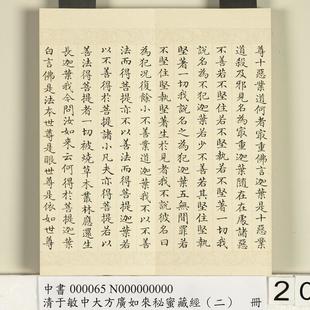 尊十惡業道何者寂重佛言迦葉是十惡業
道殺及邪見名為寂重迦葉隨在在處諸惡
不善若不堅住不堅住若不堅著一切我
說名為不犯迦葉若少不善若其堅住堅執
堅著一切我說名之為犯迦葉五無間罪若
不堅住堅執堅著生於見者我不說彼名
為犯況復餘小不善業道迦葉我不以不善
法而得菩提亦不以善法而得菩提迦葉若
以不善得於菩提諸小凡夫亦得菩提若以
善法得菩提者一切被燒草木叢林應還生
長迦葉我今問汝如來云何得於菩提迦葉
白言佛是法本世尊是眼世尊是依如世尊
中書 000065 N000000000
清于敏中大方廣如來秘蜜藏經（二） 冊
20